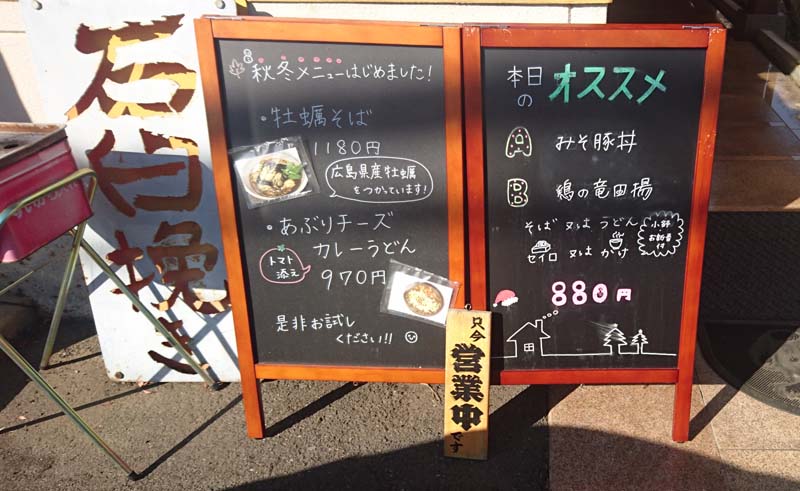 石臼挽き
秋冬メニューはじめました!
・牡蠣そば
1180円
広島県産牡蠣
をつかっています!
・あぶりチーズ
カレーうどん
トマト
添え
970円
是非お試し
ください!!
本日
の
オススメ
A
みそ豚丼
B
鶏の竜田揚
そば 又は うどん
セイロ 又は かけ
小鉢
お新香
付
880円
只今
営業中
です